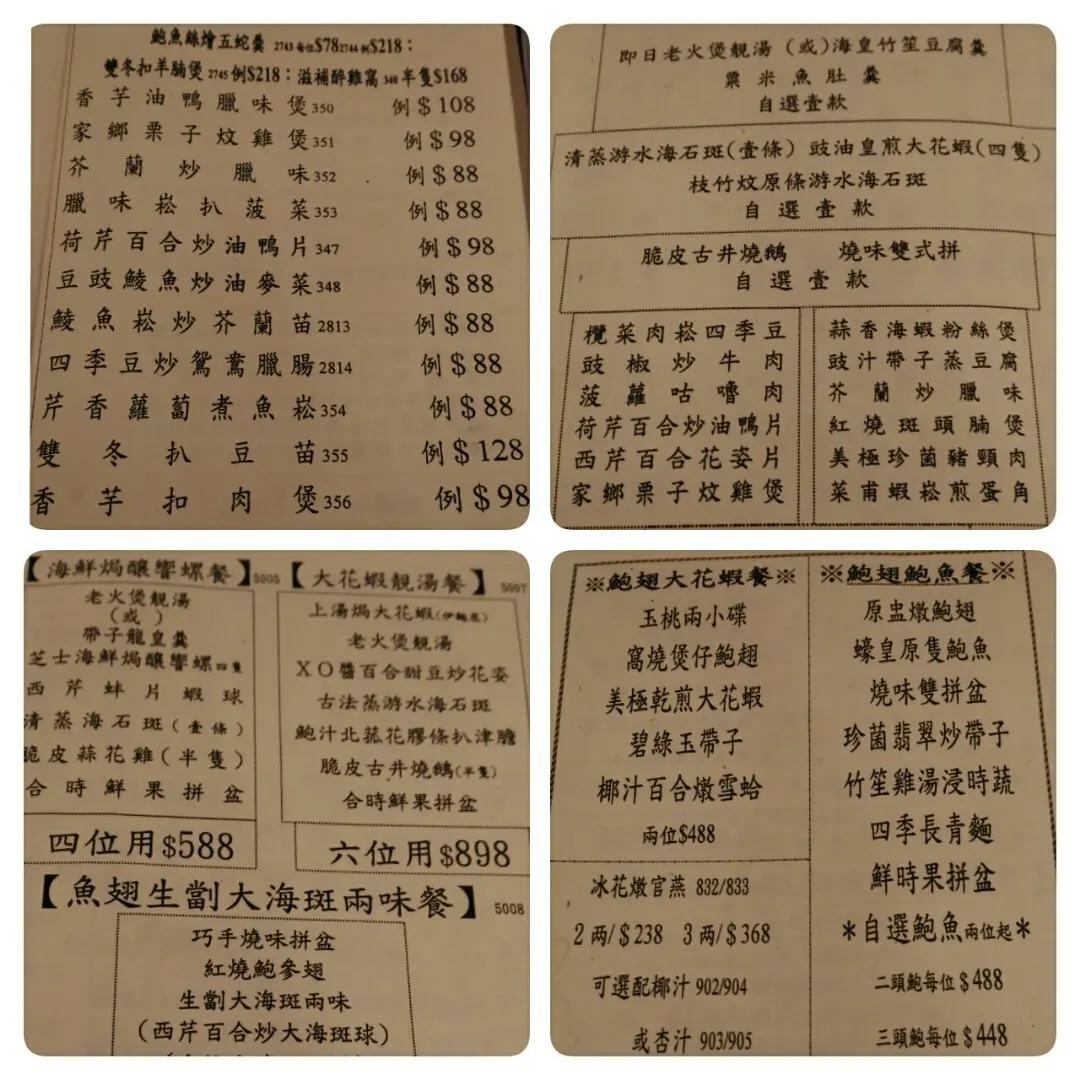 鮑魚絲燴五蛇羹 2743 每位$78 2744 例$218：
雙冬扣羊腩煲 2745 例$218：滋補醉雞窩 340 半隻$168
香芋油鴨臘味煲 350 例$108
家鄉栗子炆雞煲 351 例$98
芥蘭炒臘味 352 例$88
臘味崧扒菠菜 353 例$88
荷芹百合炒油鴨片 347 例$98
豆豉鯪魚炒油麥菜 348 例$88
鯪魚崧炒芥蘭苗 2813 例$88
四季豆炒鴛鴦臘腸 2814 例$88
芹香蘿蔔煮魚崧 354 例$88
雙冬扒豆苗 355 例$128
香芋扣肉煲 356 例$98
即日老火煲靚湯（或)海皇竹笙豆腐羹
粟米魚肚羹
自選壹款
清蒸游水海石斑(壹條) 豉油皇煎大花蝦(四隻)
枝竹炆原條游水海石斑
自選壹款
脆皮古井燒鵝 燒味雙式拼
自選壹款
欖菜肉崧四季豆
豉椒炒牛肉
菠蘿咕嚕肉
荷芹百合炒油鴨片
西芹百合花姿片
家鄉栗子炆雞煲
蒜香海蝦粉絲煲
豉汁帶子蒸豆腐
芥蘭炒臘味
紅燒斑頭腩煲
美極珍菌豬頸肉
菜甫蝦崧煎蛋角
【海鮮焗釀響螺餐】5005
老火煲靚湯
(或)
帶子龍皇羹
芝士海鮮焗釀響螺四隻
西芹蚌片蝦球
清蒸海石斑(壹條)
脆皮蒜花雞(半隻)
合時鮮果拼盆
四位用$588
【大花蝦靚湯餐】5007
上湯焗大花蝦(伊麵底)
老火煲靚湯
XO醬百合甜豆炒花姿
古法蒸游水海石斑
鮑汁北菰花膠條扒津膽
脆皮古井燒鵝(半隻)
合時鮮果拼盆
六位用$898
【魚翅生劏大海斑兩味餐】5008
巧手燒味拼盆
紅燒鮑參翅
生劏大海斑兩味
(西芹百合炒大海斑球)
※鮑翅大花蝦餐※
玉桃兩小碟
窩燒煲仔鮑翅
美極乾煎大花蝦
碧綠玉帶子
椰汁百合燉雪蛤
兩位$488
冰花燉官燕 832/833
2 两/$238 3 两/$368
可選配椰汁 902/904
或杏汁 903/905
※鮑翅鮑魚餐※
原盅燉鮑翅
蠔皇原隻鮑魚
燒味雙拼盆
珍菌翡翠炒帶子
竹笙雞湯浸時蔬
四季長青麵
鮮時果拼盆
*自選鮑魚兩位起*
二頭鮑每位$488
三頭鮑每位$448